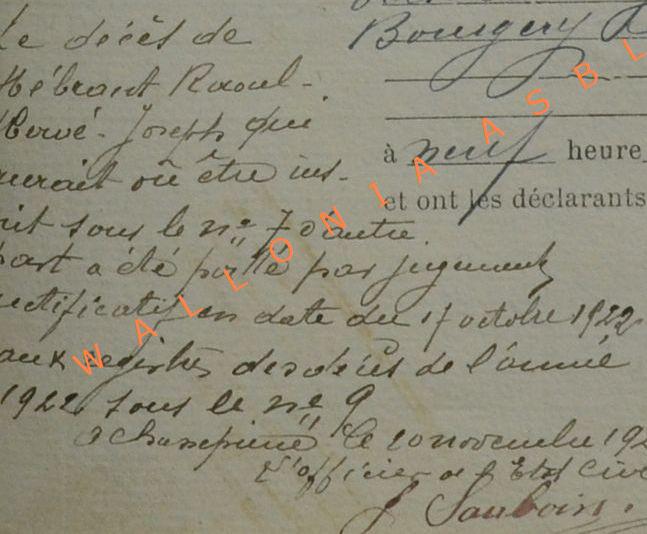 Le décès de
Hébrant Raoul-
Hervé-Joseph qui
aurait dû être ins-
crit sous le n° 7 d'autre
part a été porté par jugement
rectificatif en date du 17 octobre 1922
aux registres des décès de l'année
1922 sous le n° 9
le 20 novembre 192
L'officier de l'Etat Civ
Bourgery
à neuf heure
et ont les déclarants
WALLONIA ASBL